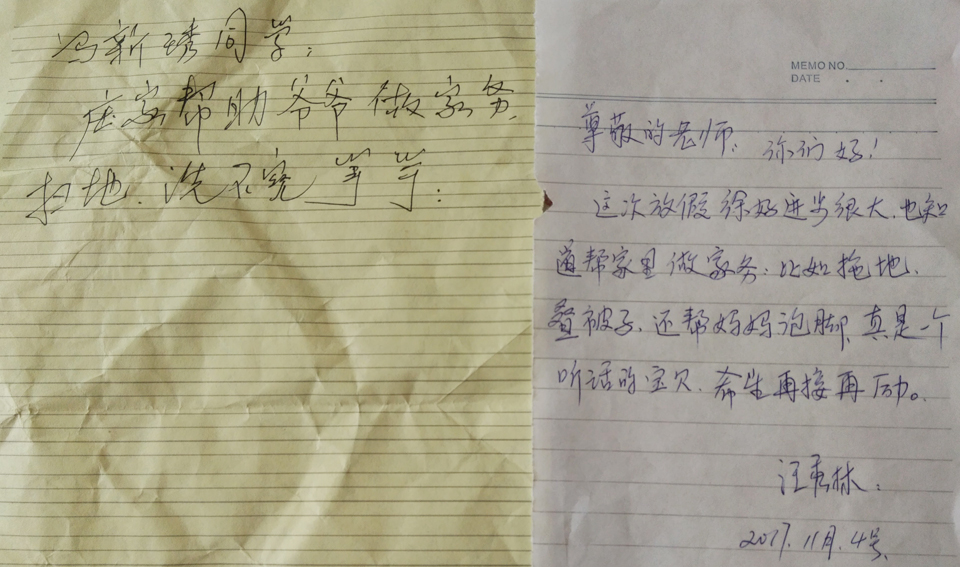 冯新琇同学:
在家帮助爷爷做家务.
扫地.洗不完等等:
MEMO NO.
DATE . .
尊敬的老师:你们好!
这次放假徐好进步很大.也知
道帮家里做家务.比如拖地.
叠被子.还帮妈妈泡脚.真是一个
听话的宝贝.希望再接再历。
汪秀林:
2017.11月.4号.